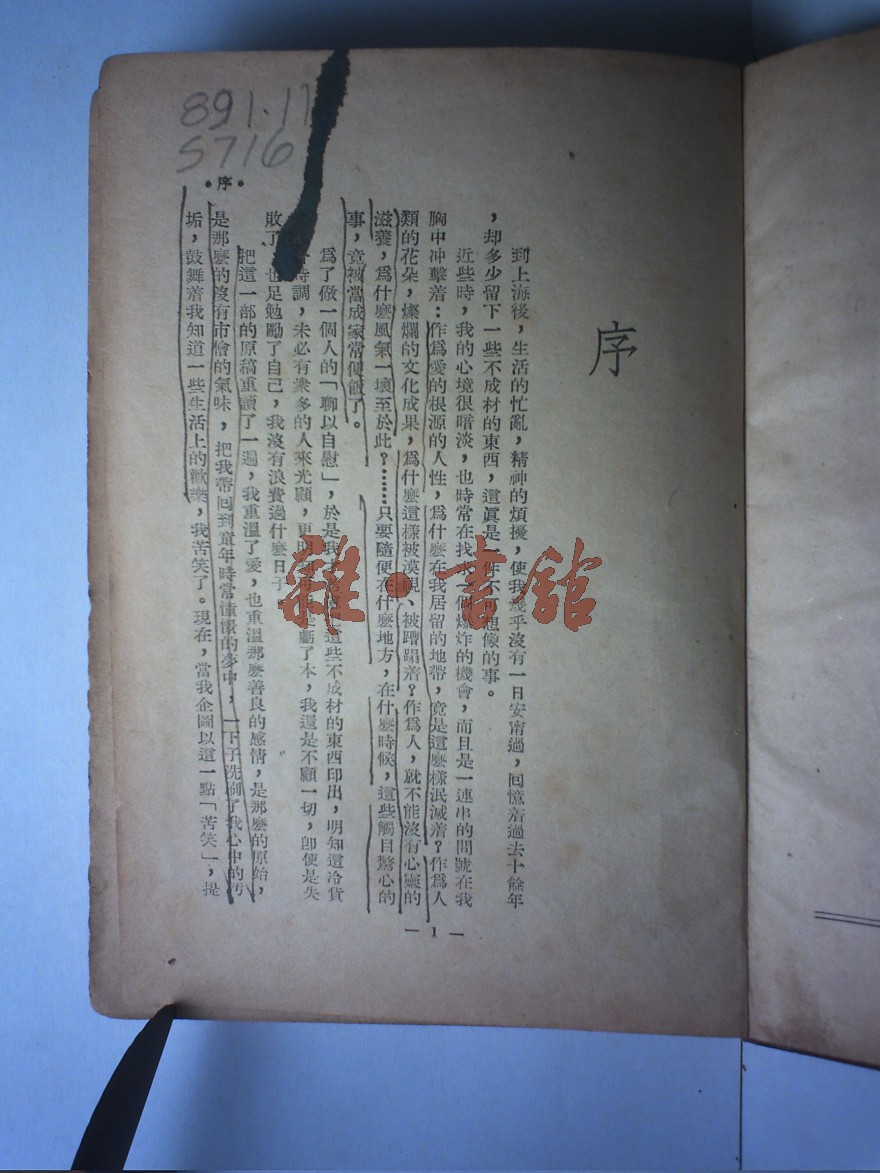 891.11
S716
•序•
序
到上海後，生活的忙亂，精神的煩擾，使我幾乎沒有一日安甯過，回憶着過去十餘年
，却多少留下一些不成材的東西，這眞是一件不可想像的事。
近些時，我的心境很暗淡，也時常在找求一個爆炸的機會，而且是一連串的問號在我
胸中冲擊着：作爲愛的根源的人性，爲什麽在我居留的地帶，竟是這麽樣泯滅着？作爲人
類的花朵，燦爛的文化成果，爲什麽這樣被漠視、被蹧蹋着？作爲人，就不能沒有心靈的
滋養，爲什麽風氣一壞至於此？……只要隨便在什麽地方，在什麽時候，這些觸目驚心的
事，竟被當成家常便飯了。
爲了做一個人的「聊以自慰」，於是我這些不成材的東西印出，明知道冷貨
時調，未必有衆多的人來光顧，更明知虧了本，我還是不顧一切，卽使是失
敗了也足勉勵了自己，我沒有浪費過什麽日子
把這一部的原稿重讀了一遍，我重溫了愛，也重溫那麽善良的感情，是那麽的原始，
是那麽的沒有市儈的氣味，把我帶回到童年時常憧憬的夢中，一下子洗刷了我心中的汚
垢，鼓舞着我知道一些生活上的歡樂，我苦笑了。現在，當我企圖以這一點「苦笑」，提
— 1 —
雜·書館